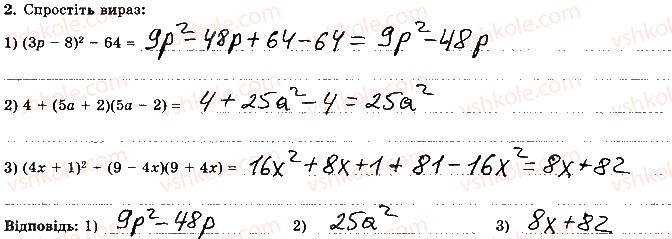 2. Спростіть вираз:
1) (3p – 8)² – 64 = 9p² – 48p + 64 – 64 = 9p² – 48p
2) 4 + (5a + 2)(5a – 2) = 4 + 25a² – 4 = 25a²
3) (4x + 1)² + (9 – 4x)(9 + 4x) = 16x² + 8x + 1 + 81 – 16x² = 8x + 82
Відповідь: 1) 9p² – 48p 2) 25a² 3) 8x + 82